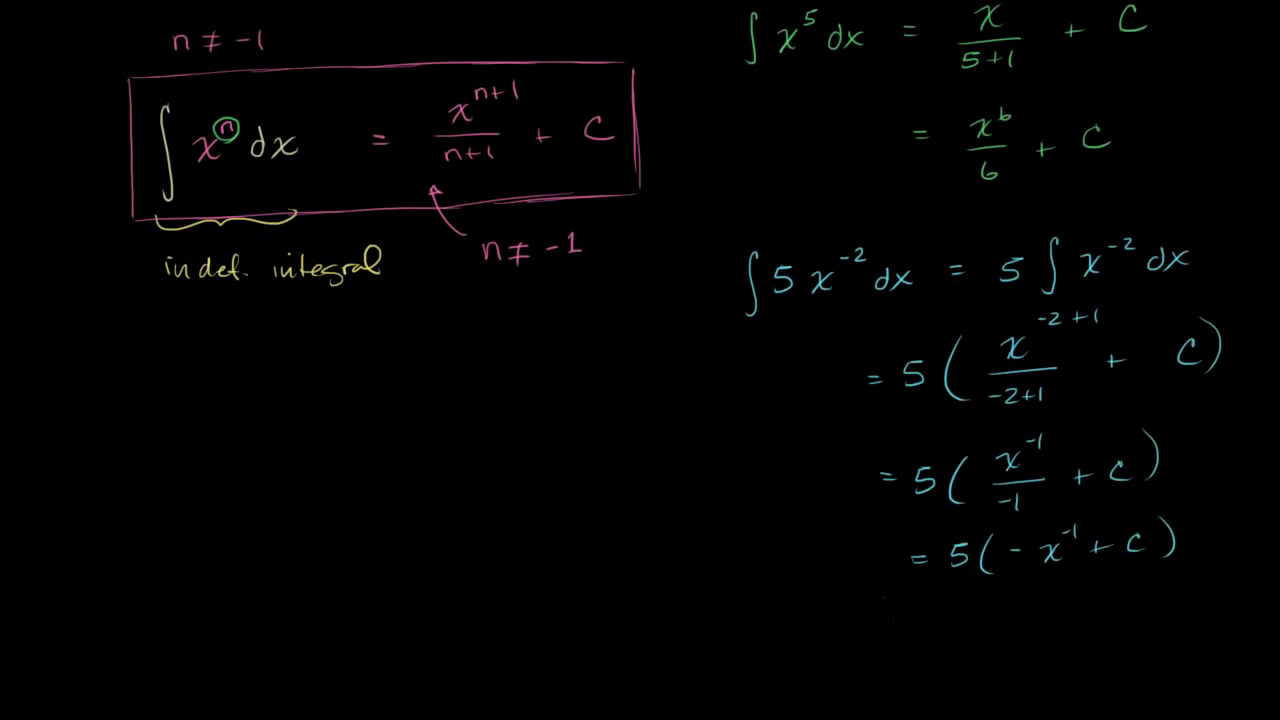 n ≠ -1
∫ xⁿ dx = xⁿ⁺¹/(n+1) + C
n ≠ -1
indef. integral
∫ x⁵ dx = x/(5+1) + C
= x⁶/6 + C
∫ 5 x⁻² dx = 5 ∫ x⁻² dx
= 5 ( x⁻²⁺¹/(-2+1) + C )
= 5 ( x⁻¹/-1 + C )
= 5 ( - x⁻¹ + C )